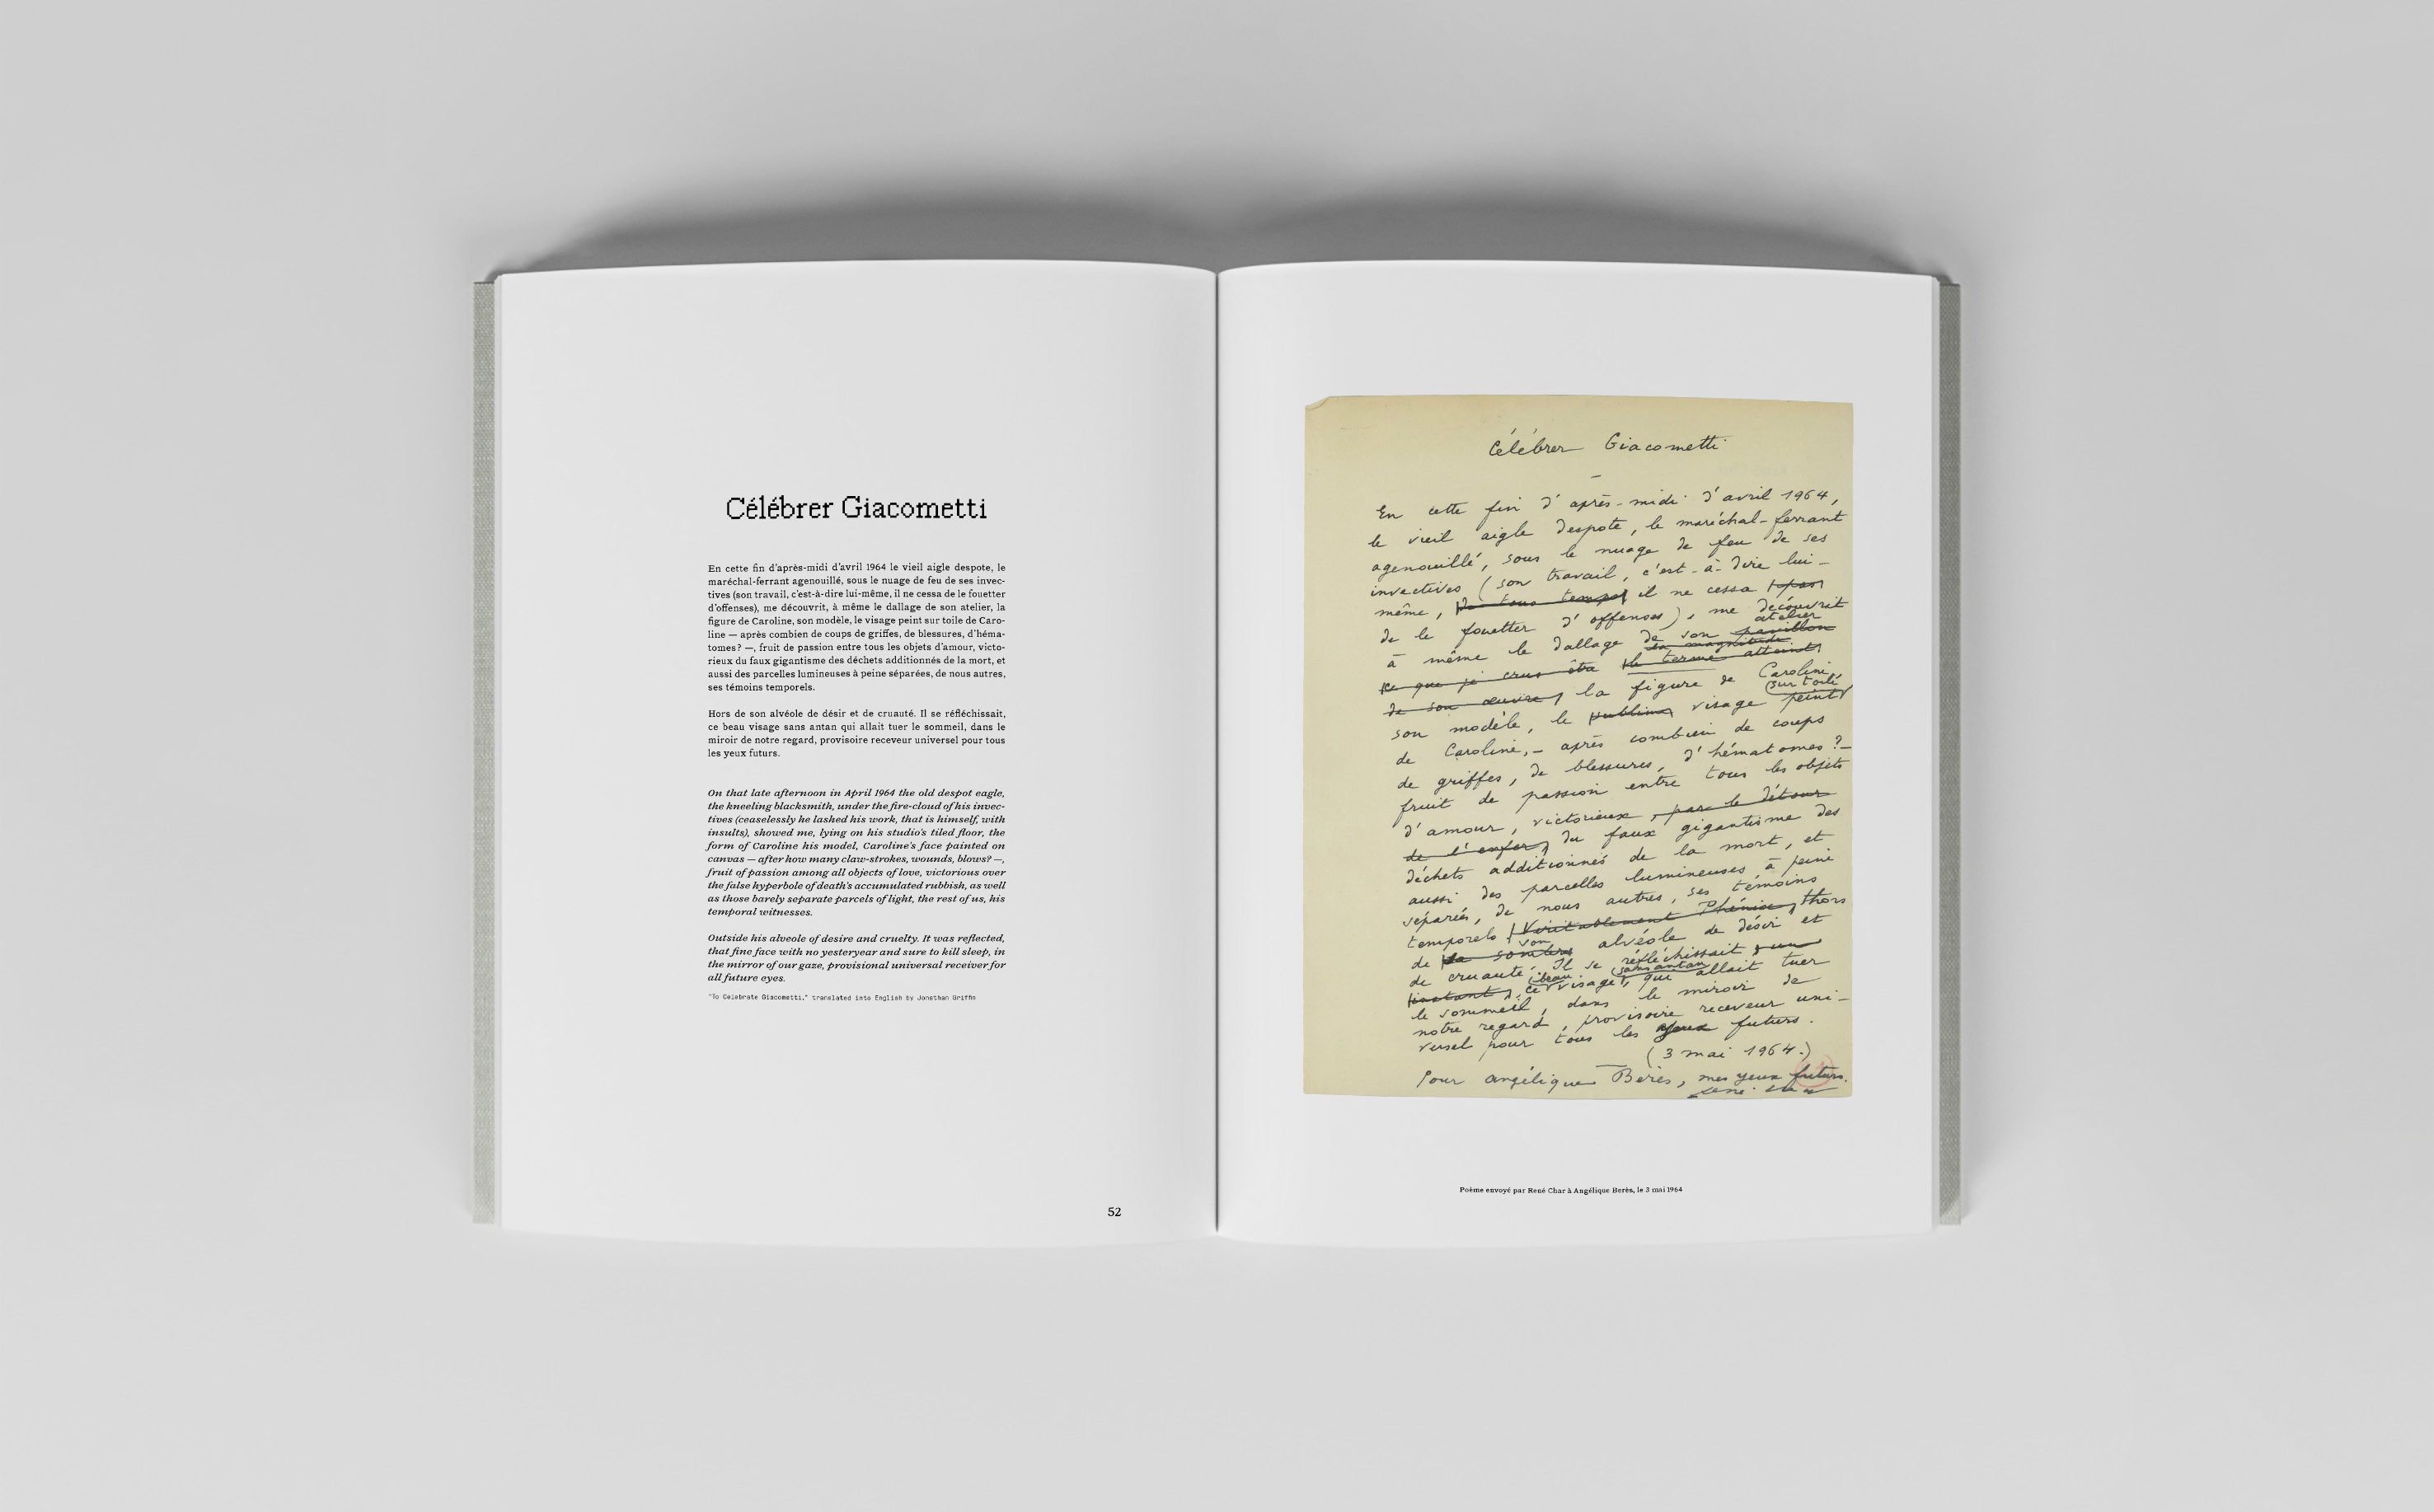 Célébrer Giacometti
En cette fin d'après-midi d'avril 1964 le vieil aigle despote, le
maréchal-ferrant agenouillé, sous le nuage de feu de ses invec-
tives (son travail, c'est-à-dire lui-même, il ne cessa de le fouetter
d'offenses), me découvrit, à même le dallage de son atelier, la
figure de Caroline, son modèle, le visage peint sur toile de Caro-
line — après combien de coups de griffes, de blessures, d'héma-
tomes? —, fruit de passion entre tous les objets d'amour, victo-
rieux du faux gigantisme des déchets additionnés de la mort, et
aussi des parcelles lumineuses à peine séparées, de nous autres,
ses témoins temporels.
Hors de son alvéole de désir et de cruauté. Il se réfléchissait,
ce beau visage sans antan qui allait tuer le sommeil, dans le
miroir de notre regard, provisoire receveur universel pour tous
les yeux futurs.
On that late afternoon in April 1964 the old despot eagle,
the kneeling blacksmith, under the fire-cloud of his invec-
tives (ceaselessly he lashed his work, that is himself, with
insults), showed me, lying on his studio's tiled floor, the
form of Caroline his model, Caroline's face painted on
canvas — after how many claw-strokes, wounds, blows? —,
fruit of passion among all objects of love, victorious over
the false hyperbole of death's accumulated rubbish, as well
as those barely separate parcels of light, the rest of us, his
temporal witnesses.
Outside his alveole of desire and cruelty. It was reflected,
that fine face with no yesteryear and sure to kill sleep, in
the mirror of our gaze, provisional universal receiver for
all future eyes.
"To Celebrate Giacometti," translated into English by Jonathan Griffin
52
Célébrer Giacometti
En cette fin d'après-midi d'avril 1964,
le vieil aigle despote, le maréchal-ferrant
agenouillé, sous le nuage de feu de ses
invectives (son travail, c'est-à-dire lui-
même, de tous temps il ne cessa
de le fouetter d'offenses), me découvrit
atelier
à même le dallage de son pavillon
sa magnitude
ce que je crus être le terme atteint
de son œuvre, la figure de Caroline,
sur toile
son modèle, le sublime visage peint
de Caroline, – après combien de coups
de griffes, de blessures, d'hématomes ? –
fruit de passion entre tous les objets
d'amour, victorieux, par le détour
de l'enfer, du faux gigantisme des
déchets additionnés de la mort, et
aussi des parcelles lumineuses, à peine
séparées, de nous autres, ses témoins
temporels. Véritablement Phénix, hors
son
de sa sombre alvéole de désir et
de cruauté. Il se réfléchissait, un
beau sans antan
instant, ce visage, qui allait tuer
le sommeil, dans le miroir de
notre regard, provisoire receveur uni-
versel pour tous les yeux futurs.
(3 mai 1964.)
Pour Angélique Berès, mes yeux futurs.
René Char
Poème envoyé par René Char à Angélique Berès, le 3 mai 1964